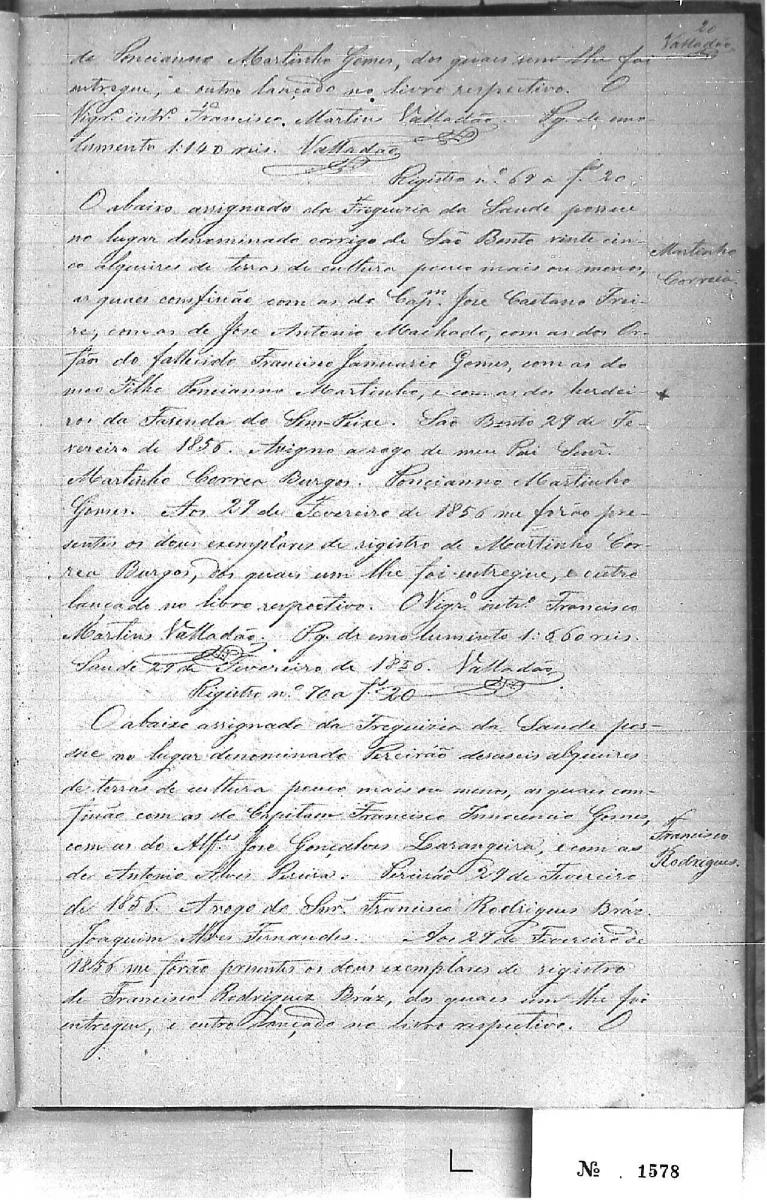 20
Valladão
de Poncianno Martinho Gomes, dos quais um lhe foi
entregue, e outro lançado no livro respectivo. O
Vigrº intrº Francisco Martins Valladão. Pg. de emo-
lumento 1:140 reis. Valladão
Registro n.º 69 a fs 20
O abaixo assignado da Freguizia da Saude possue
no lugar denominado corrigo de São Bento vinte cin-
co alquires de terras de cultura pouco mais ou menos,
as quaes confinão com as do Capm. Jose Caetano Frei-
re, com as de Jose Antonio Machado, com as dos Or-
fãos do fallecido Francisco Januario Gomes, com as do
meo Filho Poncianno Martinho, e com as dos herdei-
ros da Fasenda do Sem-Peixe. São Bento 29 de Fe-
vereiro de 1856. Asigno a rogo de meu Pai Snr.
Martinho Correa Burgos. Poncianno Martinho
Gomes. Aos 29 de Fevereiro de 1856 me forão pre-
sentes os dous exemplares de registro de Martinho Cor-
rea Burgos, dos quais um lhe foi entregue, e outro
lançado no libro respectivo. O Vigrº intrº Francisco
Martins Valladão. Pg. de emolumento 1:660 reis.
Saude 29 de Fevereiro de 1856. Valladão
Martinho
Correia.
Registro n.º 70 a fs 20
O abaixo assignado da Freguizia da Saude pos-
sue no lugar denominado Pereirão deseseis alquires
de terras de cultura pouco mais ou menos, as quais con-
finão com as do Capitam Francisco Innocencio Gomes,
com as do Alfes Jose Gonçalves Larangeira, e com as
de Antonio Alves Pereira. Pereirão 29 de Fevereiro
de 1856. A rogo do Snr. Francisco Rodrigues Bráz.
Joaquim Alves Fernandes. Aos 29 de Fevereiro de
1856 me forão presentes os dous exemplares de registro
de Francisco Rodriguez Bráz, dos quaes um lhe foi
entregue, e outro lançado no livro respectivo. O
Francisco
Rodrigues.
Nº . 1578